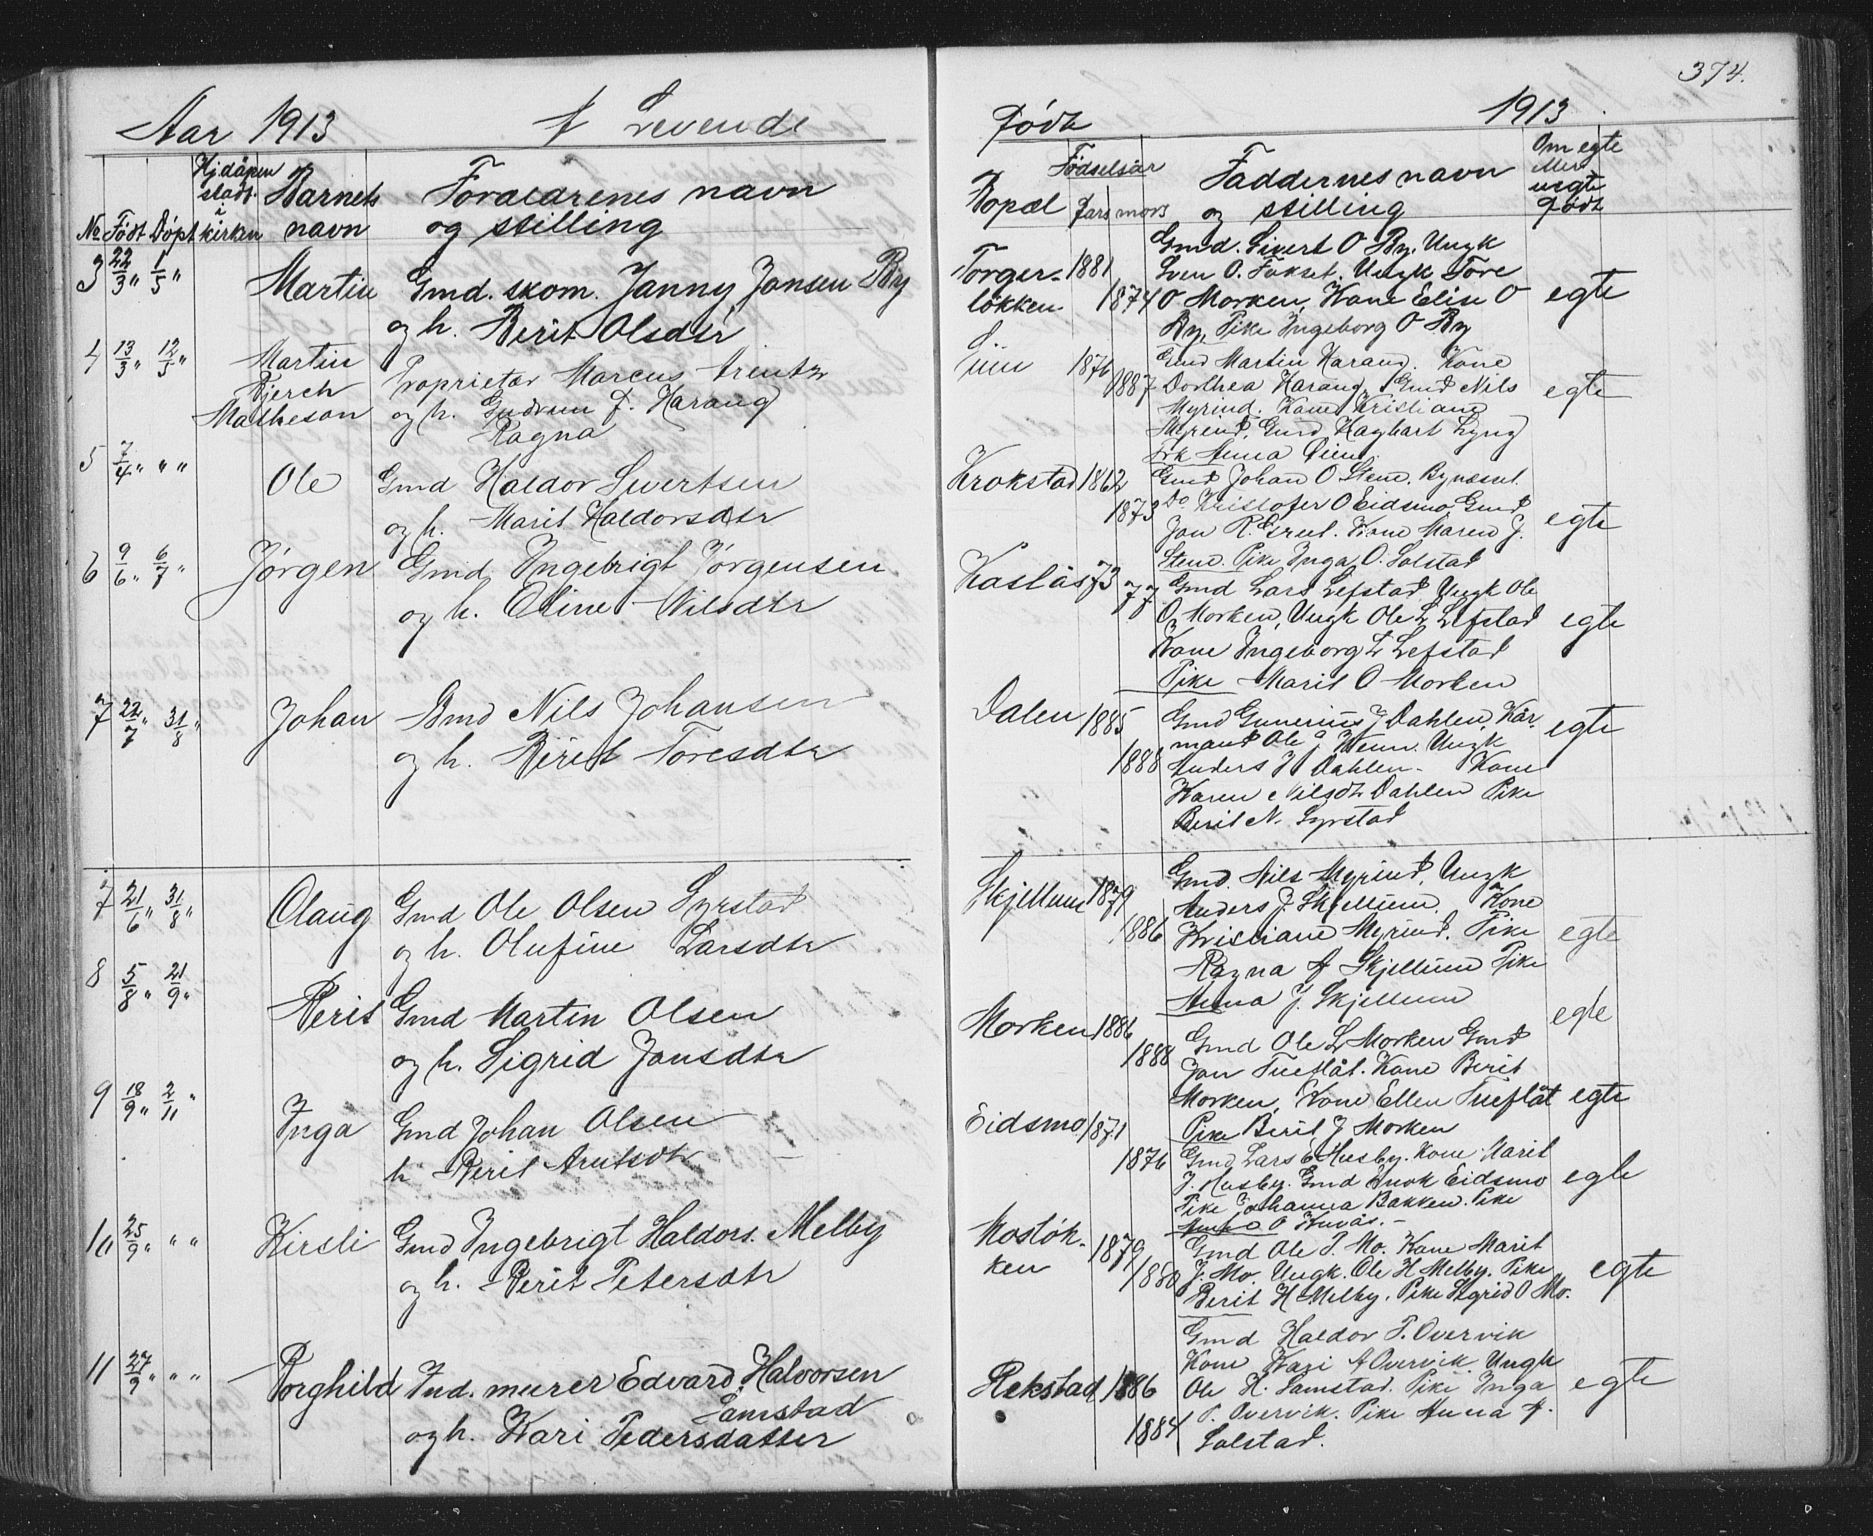 374.
Aar 1913 A Levende
Födt 1913.
No Födt Döpt Hj.dåpen stadf. i kirken Barnets navn Foraldrenes navn og stilling
Bopæl Födselsår fars mors Faddernes navn og stilling Om egte eller uegte födt
3 22/3 " 1/5 " Martin Gmd. skom. Janny Jonsen By
og h. Berit Olsdtr
Torger- 1881 Gmd. Sivert O By, Ungk
lökken 1874 Sven O. Fokset. Ungk Tore
O Morken, Kone Elise O egte
By, Pike Ingeborg O By
4 13/3 " 12/5 " Martin Proprietær Marcus
Bjerch og h. Gudrun F. Harang
Matheson Ragna
1876 Gmd Martin Harang. Kone
1887 Dorthea Harang, Gmd Nils egte
Myrind. Kone Kristiane
Myrind, Gmd Hagbart Lyng
Frk Anna
5 7/4 " " " Ole Gmd Haldor Sivertsen
og h. Marit Haldorsdtr
Krokstad 1862 Gmd Johan O Stene. Bynesset
1873 Do Kristofer O Eidsmo, Gmd egte
Jon R. Kone Maren J.
Stene. Pike Inga O. Solstad
6 9/6 " 6/7 " Jørgen Gmd Ingebrigt Jörgensen
og h. Oline Nilsdtr
Kaslås 73 Gmd Lars Lefstad, Ungk Ole
77 O Morken, Ungk Ole L Lefstad egte
Kone Ingeborg L Lefstad
Pike Marit O Morken
7 22/7 " 31/8 " Johan Gmd Nils Johansen
og h. Berit Toresdtr
Dalen 1885 Gmd Gunerius J Dahlen, Kår- egte
1888 mand Ole Ungk
Anders J Dahlen. Kone
Karen Nilsdtr Dahlen Pike
Berit N. Syrstad
7 21/6 " 31/8 " Olaug Gmd Ole Olsen Syrstad
og h. Olufine Larsdtr
Skjellum 1879 Gmd. Nils Myrind, Ungk
1886 Anders J. Skjellum, Kone
Kristiane Myrind, Pike egte
Ragna A Skjellum Pike
Anna J. Skjellum
8 5/8 " 21/9 " Berit Gmd Martin Olsen
og h. Sigrid Jonsdtr
Morken 1886 Gmd Ole L Morken Gmd egte
1888 Jon Tueflåt. Kone Berit
Morken, Kone Ellen Tueflåt
Pike Berit J Morken
9 18/9 " 2/11 " Inga Gmd Johan Olsen
h Berit Arntsdtr
Eidsmo 1871 egte
1876 Gmd Lars E Husby. Kone Marit
J. Husby. Gmd Eidsmo egte
Pike Johanna Bakken. Pike
O
10 25/9 " " " Kirsti Gmd Ingebrigt Haldors. Melby
og h. Berit Petersdtr
Moslök- 1879 Gmd Ole P. Mo. Kone Marit
ken 1880 J. Mo. Ungk. Ole H Melby. Pike egte
Berit H Melby. Pike Sigrid O Mo.
11 27/9 " " " Borghild Ind. murer Edvard Halvorsen
Samstad
og h. Kari Pedersdatter
Rekstad 1886 Gmd Haldor P. Overvik
1884 Kone Kari A Overvik. Ungk
Ole H. Samstad. Pike Inga egte
P. Overvik. Pike Anna A.
Solstad.